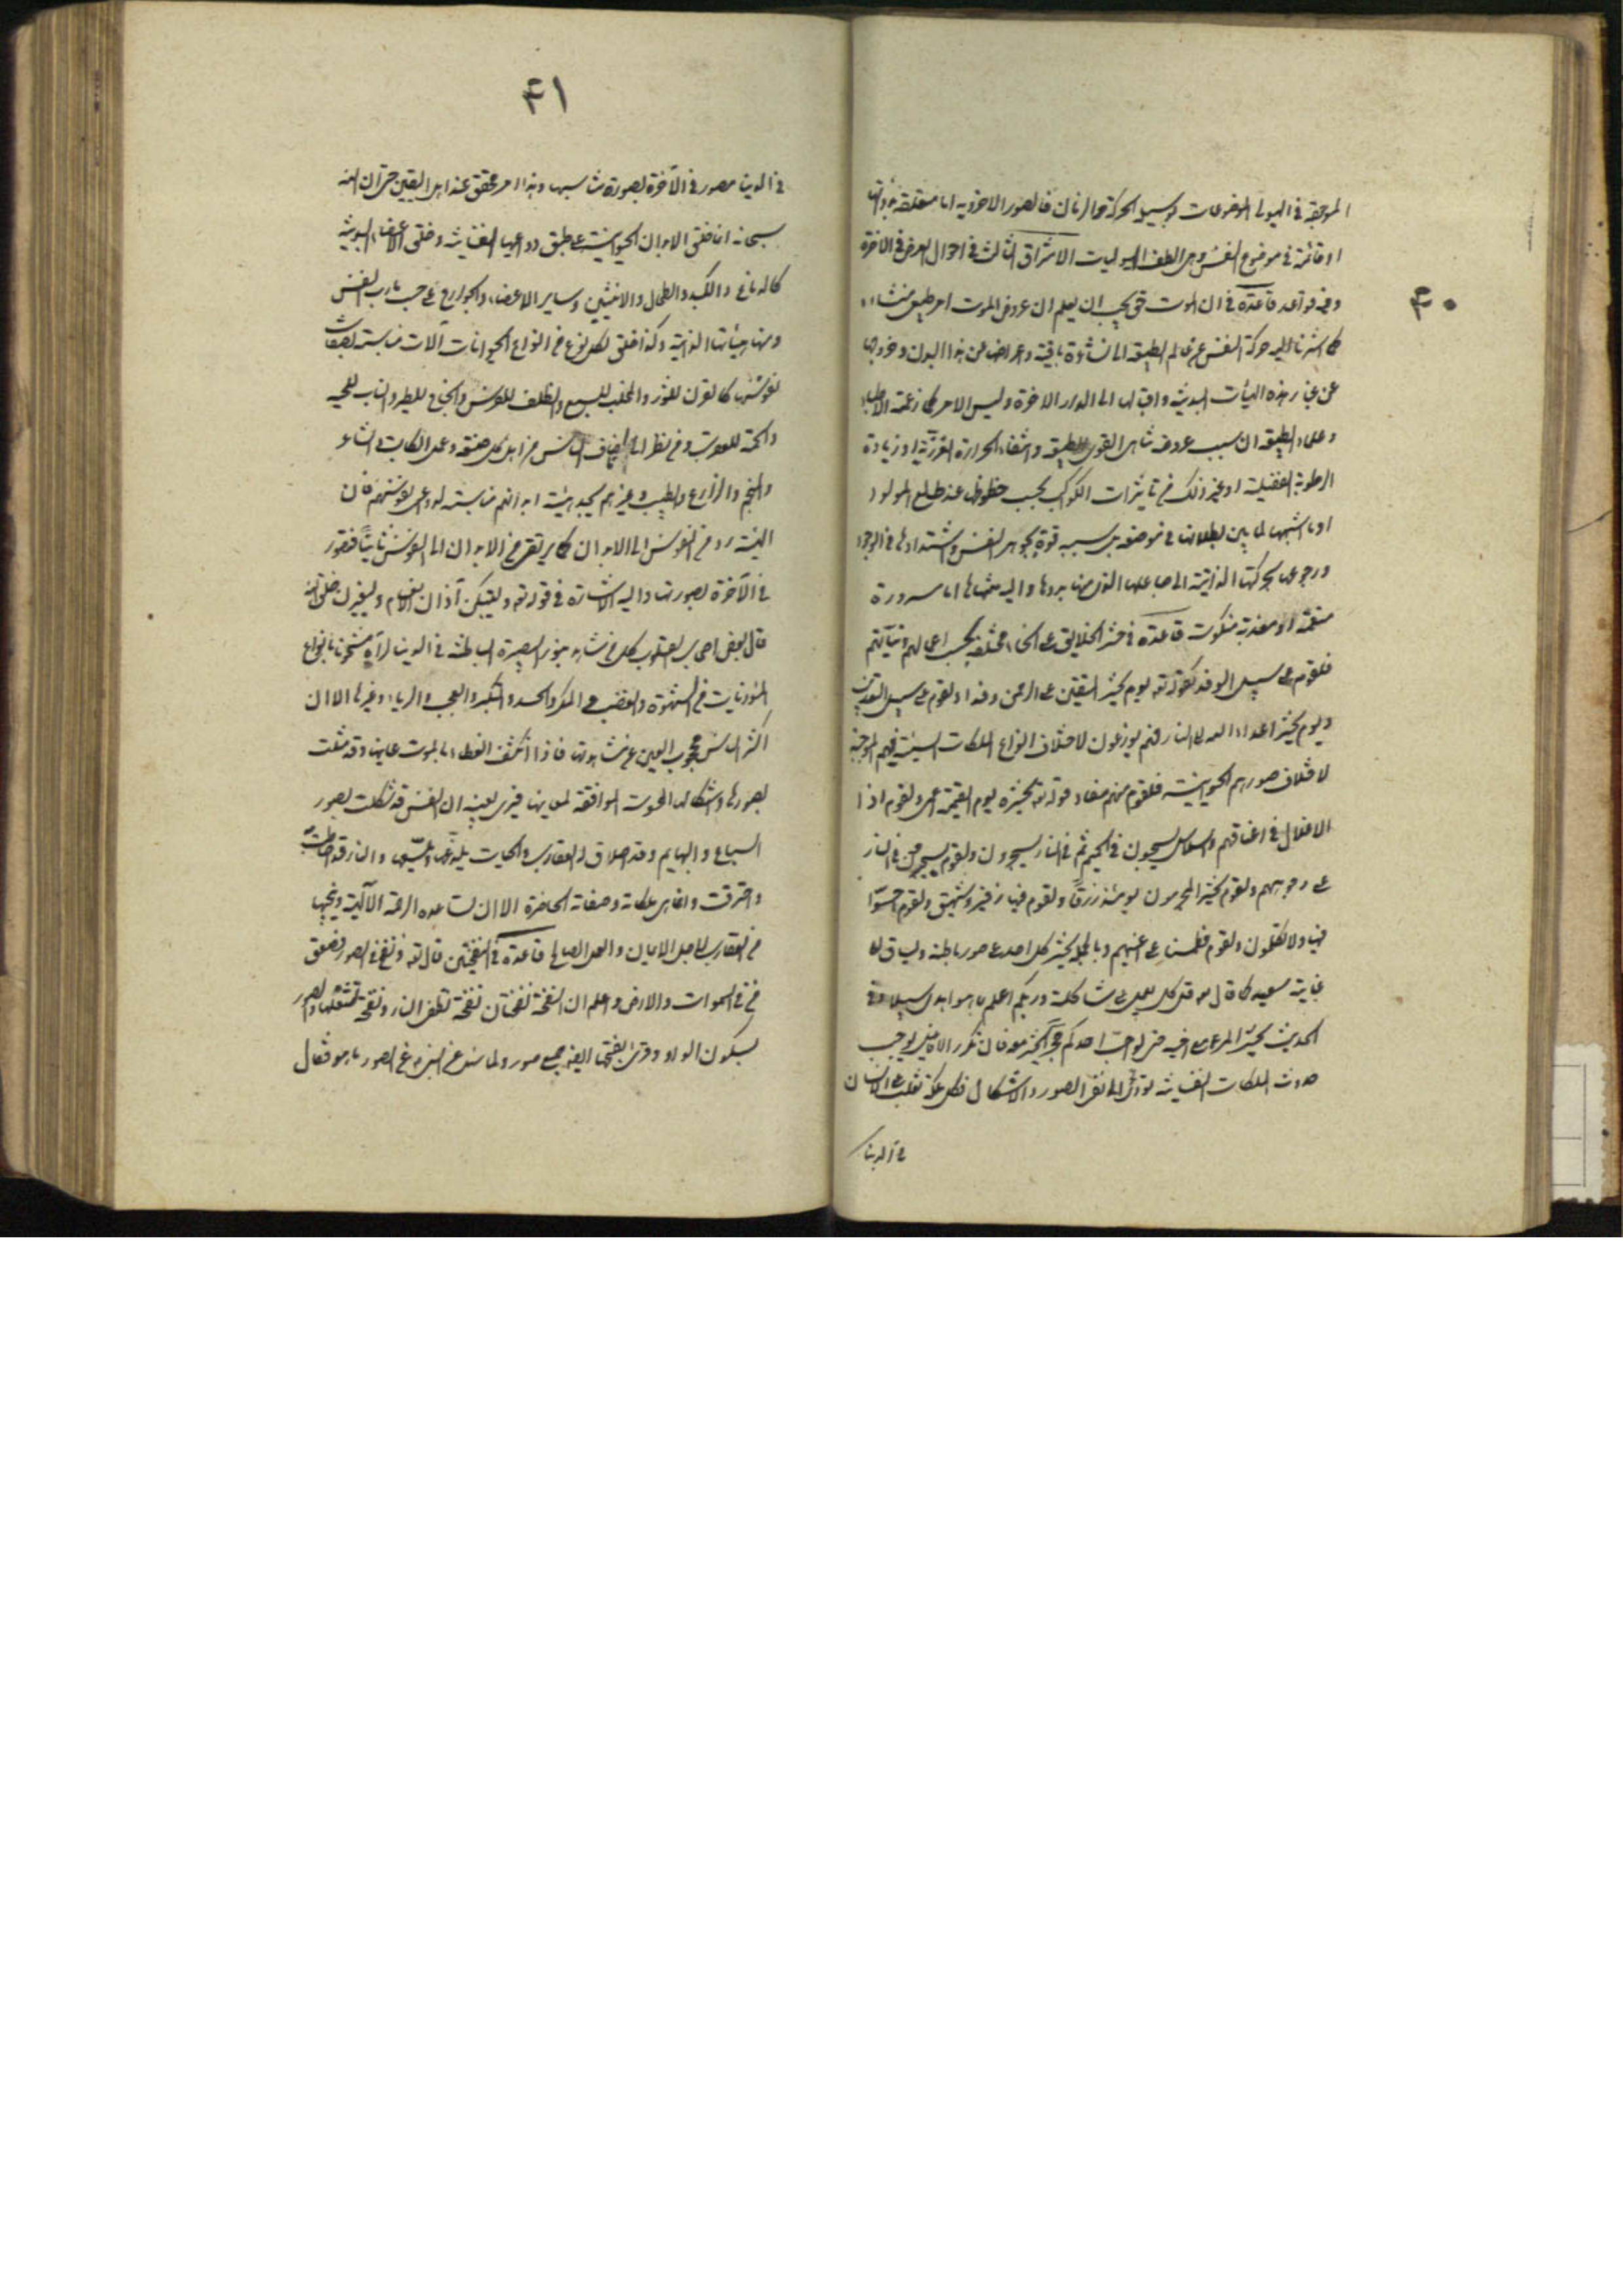 ٣٠
الموجبة فى الهيولى الموضوعات بسبيل الحركة والزمان فالصور الاخروية اما متعلقة بذواتها
او قائمة فى موضوع النفس وهى الطف الهيوليات الاشراق الثالث فى احوال تعرض فى الاخرة
وفيه قواعد قاعدة فى ان الموت حق يجب ان يعلم ان عروض الموت امر طبيعى منشاؤه
كما اشرنا اليه حركة النفس عن عالم الطبيعة الى نشاة باقية واعراضها عن هذا البدن وخروجها
عن غبار هذه الهيئات البدنية واقبالها الى الدار الاخرة وليس الامر كما زعمته الاطباء
وعلماء الطبيعة ان سبب عروضه تناهى القوى الطبيعية وانتفاء الحرارة الغريزية او زيادة
الرطوبة الفضلية او غير ذلك من تاثيرات الكواكب بحسب حظوظها عند طالع المولود
او ما اشبهها لما بين بطلانها فى موضعه بل سببه قوة تجوهر النفس واشتدادها فى الوجود
ورجوعها بحركتها الذاتية الى جاعلها الذى منها بدوها واليه منتهاها اما مسرورة
منعمة او معذبة منكوسة قاعدة فى حشر الخلايق على انحاء مختلفة بحسب اعمالهم ونياتهم
فلقوم على سبيل الوفد كقوله تع يوم نحشر المتقين الى الرحمن وفدا ولقوم على سبيل التعذيب
ويوم يحشر اعداء الله الى النار فهم يوزعون لاختلاف انواع الملكات السيئة فيهم الموجبة
لاختلاف صورهم الحيوانية فلقوم منهم مفاد قوله تع نحشره يوم القيمة اعمى ولقوم اذ ا
الاغلال فى اعناقهم والسلاسل يسحبون فى الحميم ثم فى النار يسجرون ولقوم يسحبون فى النار
على وجوههم ولقوم نحشر المجرمين يومئذ زرقا ولقوم فيها زفير وشهيق ولقوم اخسؤا
فيها ولا تكلمون ولقوم فطمسنا على اعينهم وبالجملة يحشر كل احد على صور باطنه ويساق الى
غاية سعيه كما قال تع قل كل يعمل على شاكلته وربكم اعلم بمن هو اهدى سبيلا وفى
الحديث يحشر المرء مع من احبه حتى لو احب احدكم حجرا لحشر معه فان تكرر الافاعيل يوجب
حدوث الملكات النفسانية تؤدى الى تغير الصور والاشكال فكل ملكة تغلب على الانسان
فى الدنيا
٤١
فى الدنيا مصور فى الآخرة بصورة تناسبها وهذا امر محقق عند اهل اليقين حتى ان الله
سبحانه انما خلق الابدان الحيوانية على طبق دواعيها النفسانية وخلق الاعضاء البدنية
كالدماغ والكبد والطحال والانثيين وساير الاعضاء والجوارح على حسب مارب النفس
ومنها هيئاتها الذاتية وكذا خلق لكل نوع من انواع الحيوانات آلات مناسبة لصفات
نفوسها كالقرن للثور والمخلب للسبع والظلف للفرس والجناح للطير والناب للحية
والحمة للعقرب ومن نظر الى اصناف الناس من اهل كل صنعة وعمل كالكاتب والشاعر
والمنجم والزارع والطبيب وغيرهم يجد هيئة ابدانهم مناسبة لدواعى نفوسهم فان
الهيئة يرد من النفوس الى الابدان كما يرتقى من الابدان الى النفوس ثانيا فتصور
فى الآخرة بصورتها واليه الاشارة فى قوله تع وليبتكن آذان الانعام وليغيرن خلق الله
قال بعض اصحاب القلوب كل من شاهد بنور البصيرة الباطنة فى الدنيا لرآه مشحونا بانواع
المؤذيات من الشهوة والغضب والمكر والحسد والتكبر والعجب والرياء وغيرها الا ان
اكثر الناس محجوب العين عن مشاهدتها فاذا انكشف الغطاء بالموت عاينها وقد تمثلت
بصورها واشكالها المحسوسة الموافقة لمعانيها فيرى بعينه ان النفس قد تشكلت بصور
السباع والبهايم وقد احدق له العقارب والحيات يلدغها ويلسعها والنار قد احاطت
واحترقت وانما هى ملكاته وصفاته الحاضرة الا ان تساعده الرحمة الآلهية وينجيها
من العقارب لاجل الايمان والعمل الصالح قاعدة فى النفختين قال تع ونفخ فى الصور فصعق
من فى السموات والارض واعلم ان النفخة نفختان نفخة تطفئ النار ونفخة تشعلها والصور
بسكون الواو وقرئ بفتحها ايضا جمع صور ولما سئل عن النبى ص عن الصور ما هو فقال